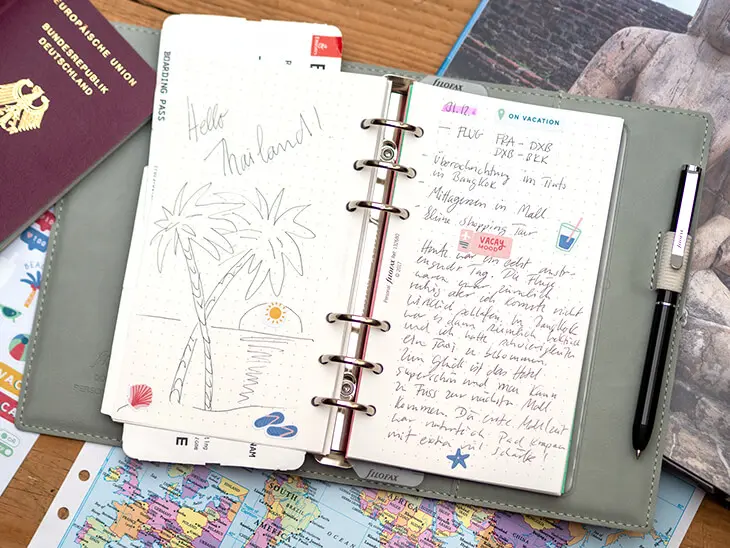 EUROPÄISCHE UNION
BUNDESREPUBLIK
DEUTSCHLAND
BOARDING PASS
Emirates
E
Hello
Thailand!
E
FILOFAX
31.12.
ON VACATION
— FLUG FRA - DXB
DXB - BKK
- Übernachtung im
in Bangkok
- Mittagessen in Mall
- kleine Shopping Tour
VACAY
MOOD
Heute war ein echt anstr-
engender Tag. Die Flüge
waren unter ziemlich
ruhig aber ich konnte nicht
wirklich schlafen. In Bangkok
war es dann ziemlich hektisch
und ich hatte Schwierigkeiten
ein Taxi zu bekommen.
Zum Glück ist das Hotel
superschön und man kann
zu Fuss zur nächsten Mall
kommen. Die erste Mahlzeit
war natürlich Pad
mit extra viel Schärfe!
Personal FILOFAX Ref 132682
© 2017
FILOFAX
FILOFAX
SOUTH
AMERICA
AFRICA
OCEAN